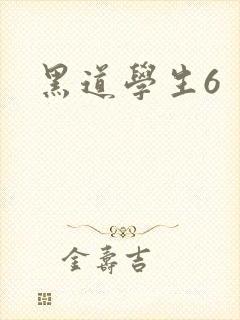 黑道學生6
金壽吉